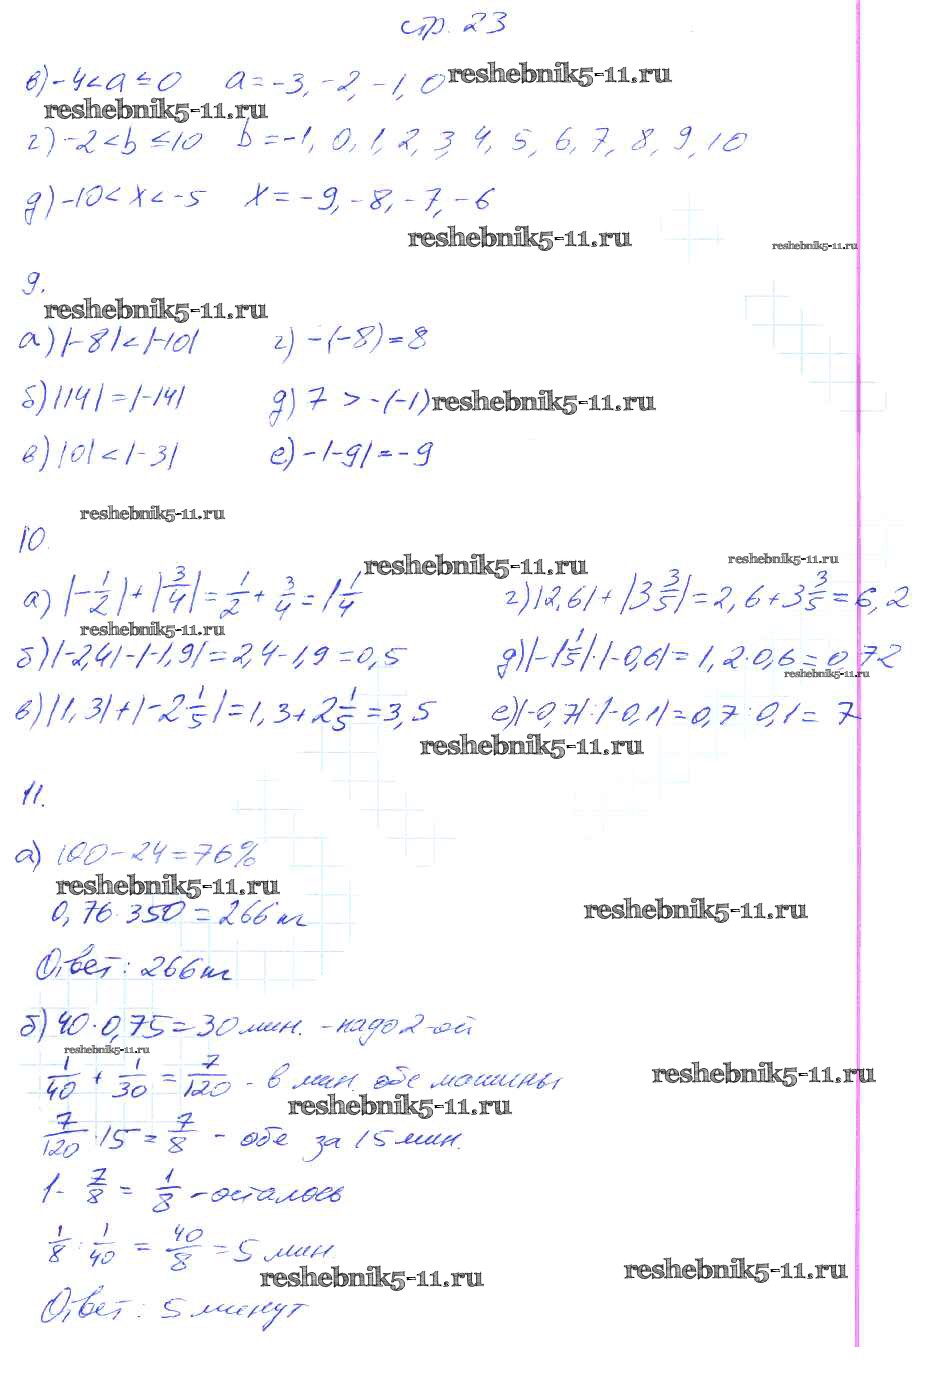 стр. 23
в) -4 < a ≤ 0 a = -3, -2, -1, 0 reshebnik5-11.ru
reshebnik5-11.ru
г) -2 < b ≤ 10 b = -1, 0, 1, 2, 3, 4, 5, 6, 7, 8, 9, 10
д) -10 < x < -5 x = -9, -8, -7, -6
reshebnik5-11.ru reshebnik5-11.ru
9.
reshebnik5-11.ru
а) |-8| < |-10| г) -(-8) = 8
б) |14| = |-14| д) 7 > -(-1) reshebnik5-11.ru
в) |0| < |-3| е) -|-9| = -9
reshebnik5-11.ru
10.
reshebnik5-11.ru reshebnik5-11.ru
а) |-1/2| + |3/4| = 1/2 + 3/4 = 1 1/4 г) |2,6| + |3 3/5| = 2,6 + 3 3/5 = 6,2
reshebnik5-11.ru
б) |-2,4| - |-1,9| = 2,4 - 1,9 = 0,5 д) |-1 1/5| · |-0,6| = 1,2 · 0,6 = 0,72
reshebnik5-11.ru
в) |1,3| + |-2 1/5| = 1,3 + 2 1/5 = 3,5 е) |-0,7| : |-0,1| = 0,7 : 0,1 = 7
reshebnik5-11.ru
11.
а) 100 - 24 = 76%
reshebnik5-11.ru
0,76 · 350 = 266 кг reshebnik5-11.ru
Ответ: 266 кг
б) 40 · 0,75 = 30 мин. - надо 2-ой
reshebnik5-11.ru
1/40 + 1/30 = 7/120 - в мин. обе машины reshebnik5-11.ru
reshebnik5-11.ru
7/120 · 15 = 7/8 - обе за 15 мин.
1 - 7/8 = 1/8 - осталось
1/8 : 1/40 = 40/8 = 5 мин.
reshebnik5-11.ru reshebnik5-11.ru
Ответ: 5 минут